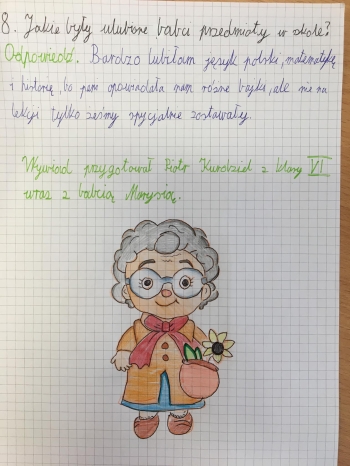 8. Jakie były ulubione babci przedmioty w szkole?
Odpowiedź. Bardzo lubiłam język polski, matematykę
i historię, bo pani opowiadała nam różne bajki, ale nie na
lekcji tylko żeśmy specjalnie zostawały.
Wywiad przygotował Piotr Kurdziel z klasy VI
wraz z babcią Marysią.